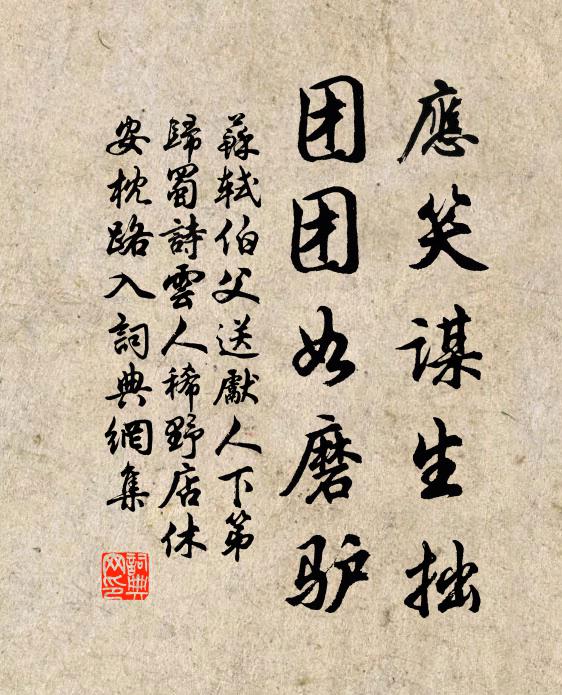 應笑謀生拙
团团如磨驴
蘇軾伯父送獻人下第
歸蜀詩雲人稀野店休
安枕路入詞典網集
詞典网印